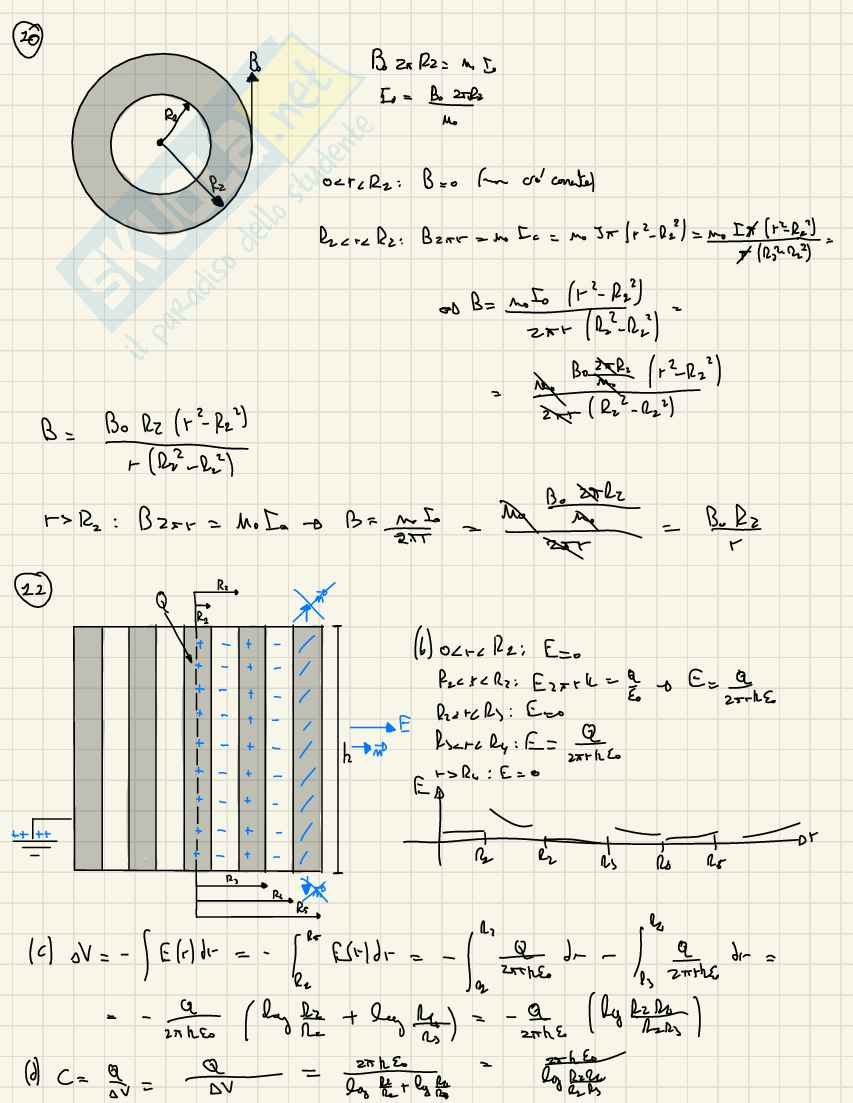 20
B₀ 2π R₂ = μ₀ I₀
I₀ = B₀ 2πR₂ / μ₀
B₀
R₁
R₂
0<r<R₁: B=0
R₁<r<R₂: B2πr = μ₀ Ic = μ₀ Jπ (r²-R₁²) = μ₀ Iπ (r²-R₁²) / π (R₂²-R₁²) =
B = μ₀I₀ (r²-R₁²) / 2πr (R₂²-R₁²) =
= μ₀ B₀ 2πR₂ / μ₀ (r²-R₁²) / 2πr (R₂²-R₁²)
B = B₀ R₂ (r²-R₁²) / r (R₂²-R₁²)
r>R₂: B2πr = μ₀ I₀ → B = μ₀ I₀ / 2πr = μ₀ B₀ 2πR₂ / μ₀ / 2πr = B₀ R₂ / r
SKUOLA.net
il paradiso dello studente
22
Q
R₂
R₁
h
E
n
R₃
R₄
R₅
(b) 0<r<R₁: E=0
R₁<r<R₂: E2πrh = Q/ε₀ → E = Q / 2πrhε₀
R₂<r<R₃: E=0
R₃<r<R₄: E = Q / 2πrhε₀
r>R₄: E=0
E
R₁ R₂ R₃ R₄ R₅ r
(c) ΔV = - ∫ E(r) dr = - ∫ E(r) dr = - ∫ Q / 2πrhε₀ dr - ∫ Q / 2πrhε₀ dr =
= - Q / 2πhε₀ (log R₂/R₁ + log R₄/R₃) = - Q / 2πhε₀ (log R₂R₄ / R₁R₃)
(d) C = Q/ΔV = Q / ΔV = 2πhε₀ / log R₂/R₁ + log R₄/R₃ = 2πhε₀ / log R₂R₄ / R₁R₃